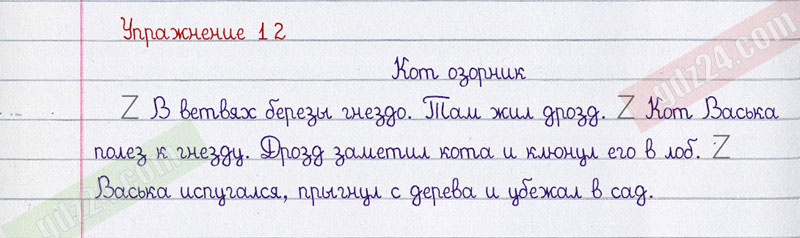 Упражнение 12
Кот озорник
Z В ветвях березы гнездо. Там жил дрозд. Z Кот Васька
полез к гнезду. Дрозд заметил кота и клюнул его в лоб. Z
Васька испугался, прыгнул с дерева и убежал в сад.
gdz24.com
gdz24.com